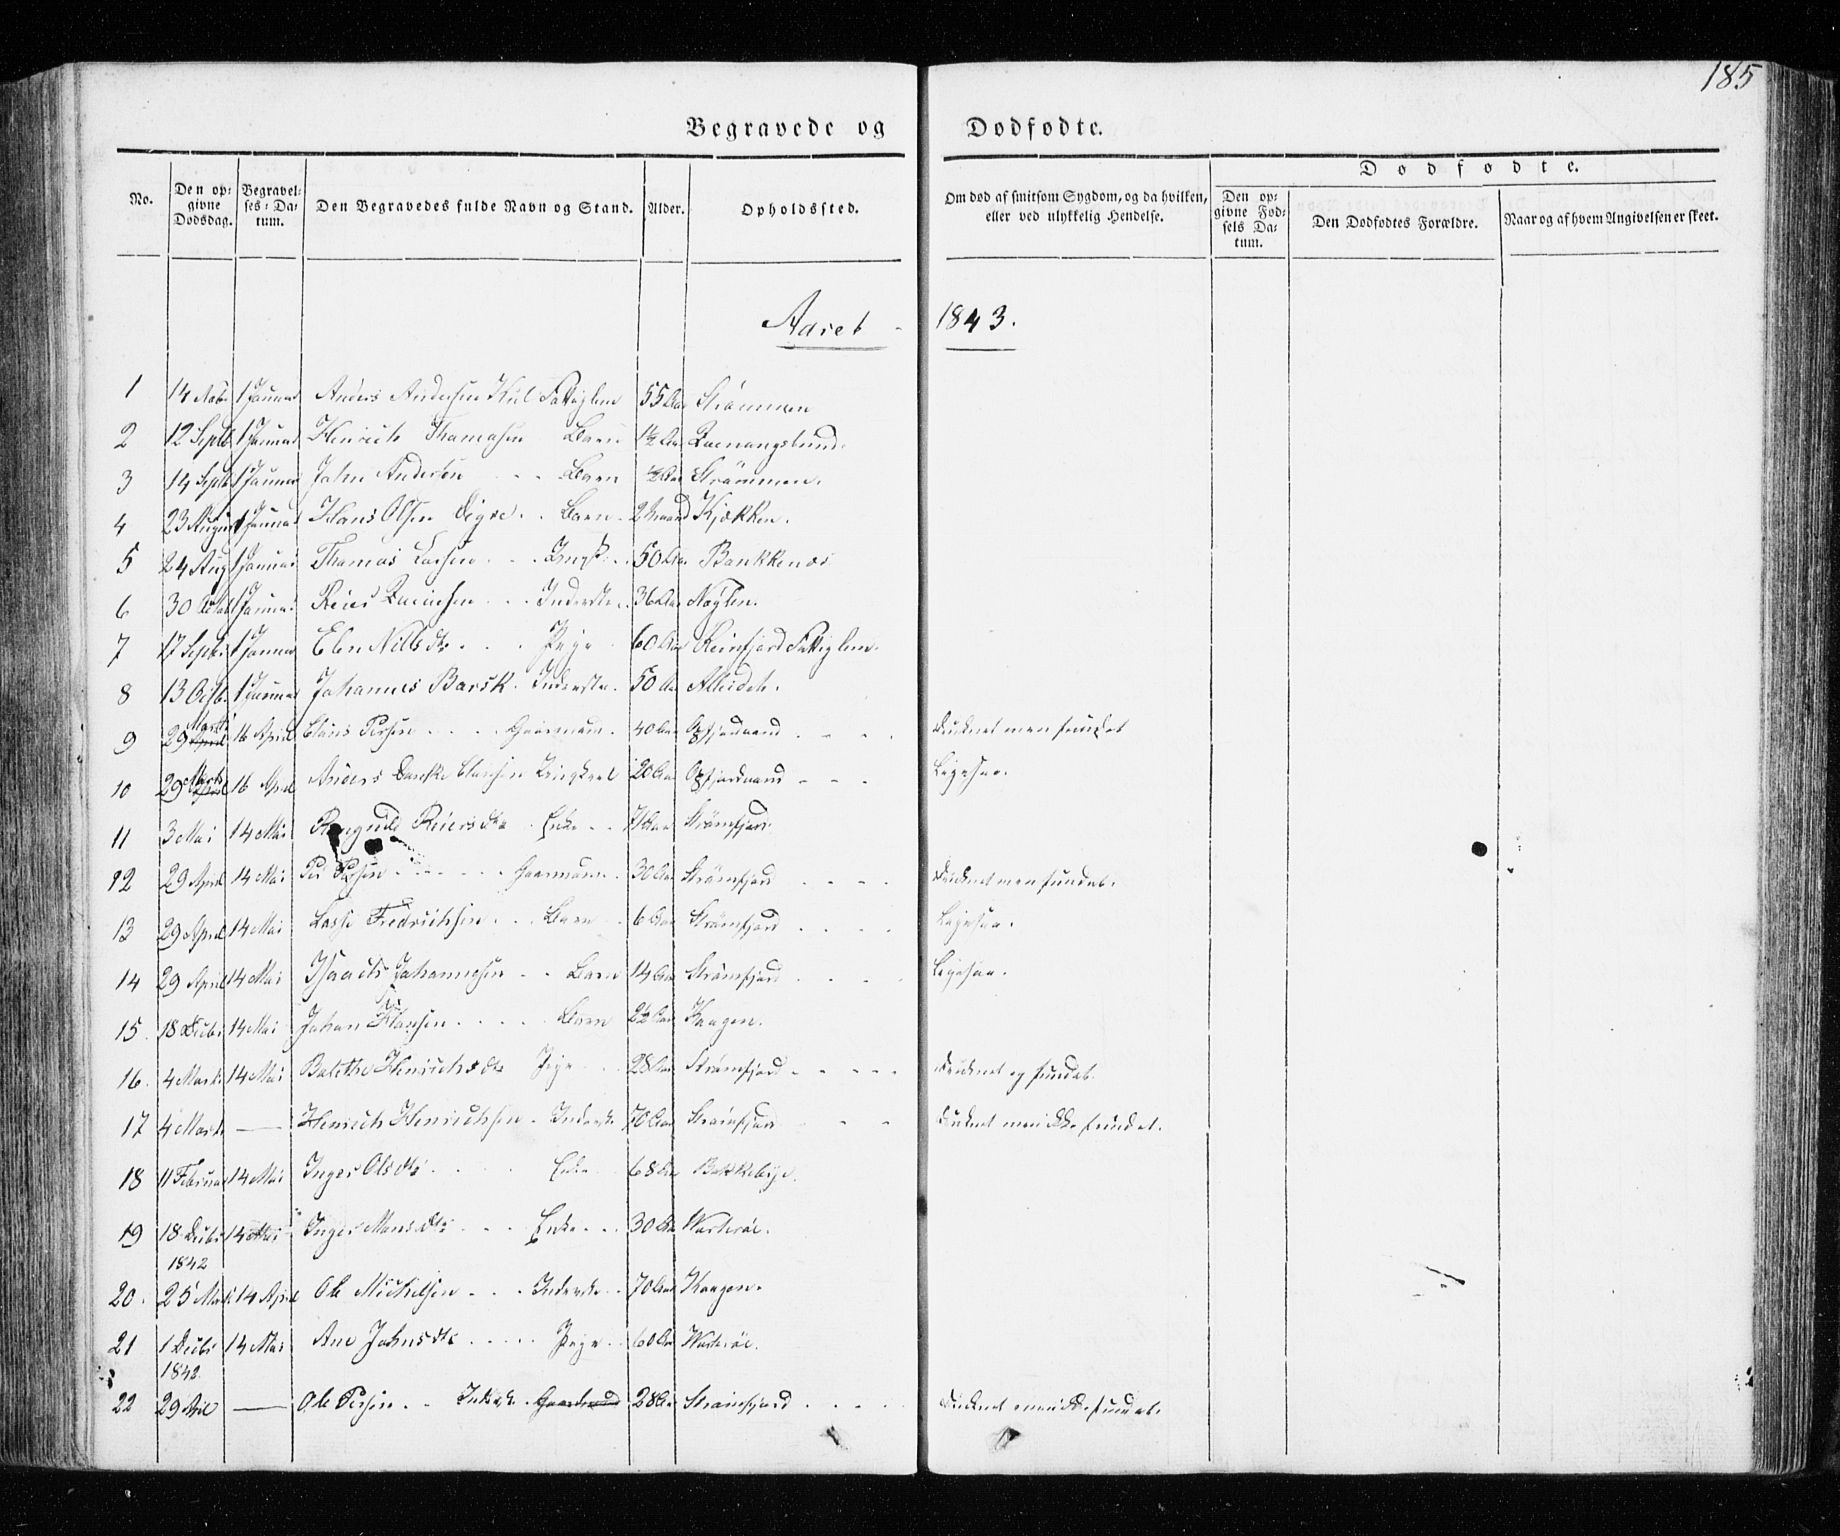 185
Begravede og Dodfodte.
No.
Den opgivne Dodsdag.
Begravelses-Datum.
Den Begravedes fulde Navn og Stand.
Alder.
Opholdssted.
Om dod af smitsom Sygdom, og da hvilken, eller ved ulykkelig Hendelse.
Dodfodte.
Den opgivne Fodsels Datum.
Den Dodfodtes Forældre.
Naar og af hvem Angivelsen er skeet.
Aaret - 1843.
1 14 1 Januar Anders Andersen Fattiglem 55 Aar Strømmen
2 12 Septb 1 Januar Henrich Thomasen Barn 1½ Aar
3 14 Septb 1 Januar John Andersen - - Barn ½ Aar Strømmen.
4 23 August 1 Januar Hans Olsen Eigre . . Barn . 2 Maand Kjækken.
5 24 Aug 1 Januar Thomas Larsen . . . 50 Aar Bankkenæs
6 30 Octob 1 Januar Reier . . . Inderste . . 36 Aar Nøglen.
7 17 Septbr 1 Januar Elen Nilsdtr . . . Pige 60 Aar Reinfjord Fattiglem.
8 13 Octb. 1 Januar Johannes Barsk . Inderste . 50 Aar Alteidet.
9 29 Marts 16 April Claus Persen . . . . . Gaarmand . 40 Aar . . . Druknet men fundet
10 29 Marts 16 April Anders Danke Clausen 20 Aar - - - Ligesaa.
11 3 Mai 14 Mai Reiersdtr . Enke . . 71 Aar Strømfjord
12 29 April 14 Mai Per Persen - - - - - - Gaarmand . 30 Aar Strømfjord . . . . Druknet men fundet.
13 29 April 14 Mai Lasse Fredrichsen . . . Barn . . 6 Aar Strømfjord . . . . Ligesaa.
14 29 April 14 Mai Isaach Johannesen . . Barn 14 Aar Strømfjord . . . . Ligesaa.
15. 18 Decbr 14 Mai Johan Hansen . . . . . Barn 2½ Aar Kaagen.
16. 4 Marts 14 Mai Henrichsdtr Pige . . . 28 Aar Strømfjord - - - - - Druknet og fundet.
17 4 Marts — Henrich Henrichsen . Inderste 70 Aar Strømfjord - - - Druknet men ikke fundet.
18 11 Februar 14 Mai Inger Olsdtr . . . . Enke . . 68 Aar Bakkebye.
19 18 Decbr 1842 14 Mai Inger Monsdtr . . . Enke . . . 30 AarWorterøe.
20. 25 Marts 14 April Ole Michelsen . . . Inderste . . 70 Aar Kaagen.
21 1 Decbr 1842 14 Mai Ane Johnsdtr . . . . . Pige . . 60 Aar Worterøe.
22 29 April — Ole Persen . . Inderste . 28 Aar Strømfjord . . . . . Druknet men ikke fundet.